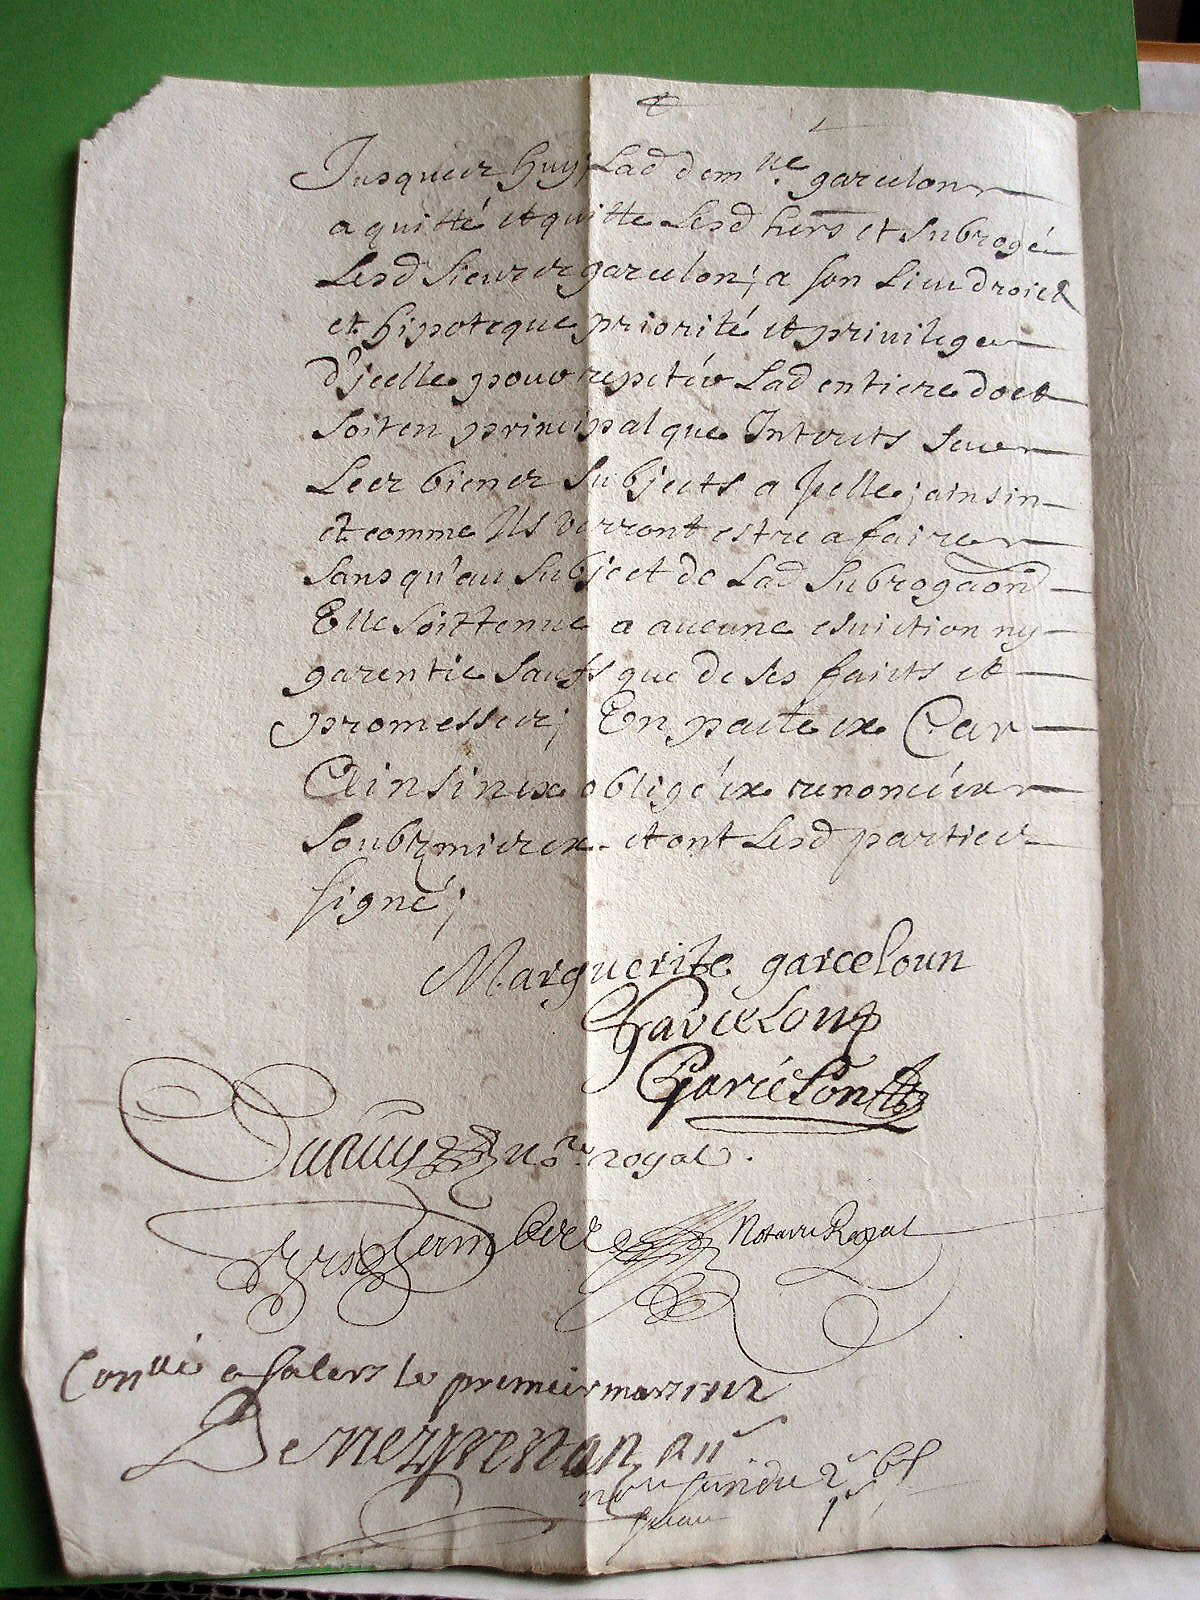 Jusques huy Lad demlle garcelon
a quitté et quitte Lesd hers et subrogé
Lesd sieurs garcelon; a son Lieu droict
et hipoteque priorité et privilege
d'jcelle pour repetér Lad entiere doct
soit en principal que Interets sur
Les biens subjects a jcelle; ainsin
et comme Ils verront estre a faire
sans qu'au subject de Lad subrogaon
Elle soit tenue a aucune esuiction ny
garentie saufs que de ses faicts et
promesses; En pacte ex Car
Ainsin ex obligé ex renoncé ex
soubzmis ex et ont Lesd parties
signé;
Marguerite garceloun
Garcelon
Garcélon
nore royal.
Notaire Royal
Conllé a Salers le premeir mars